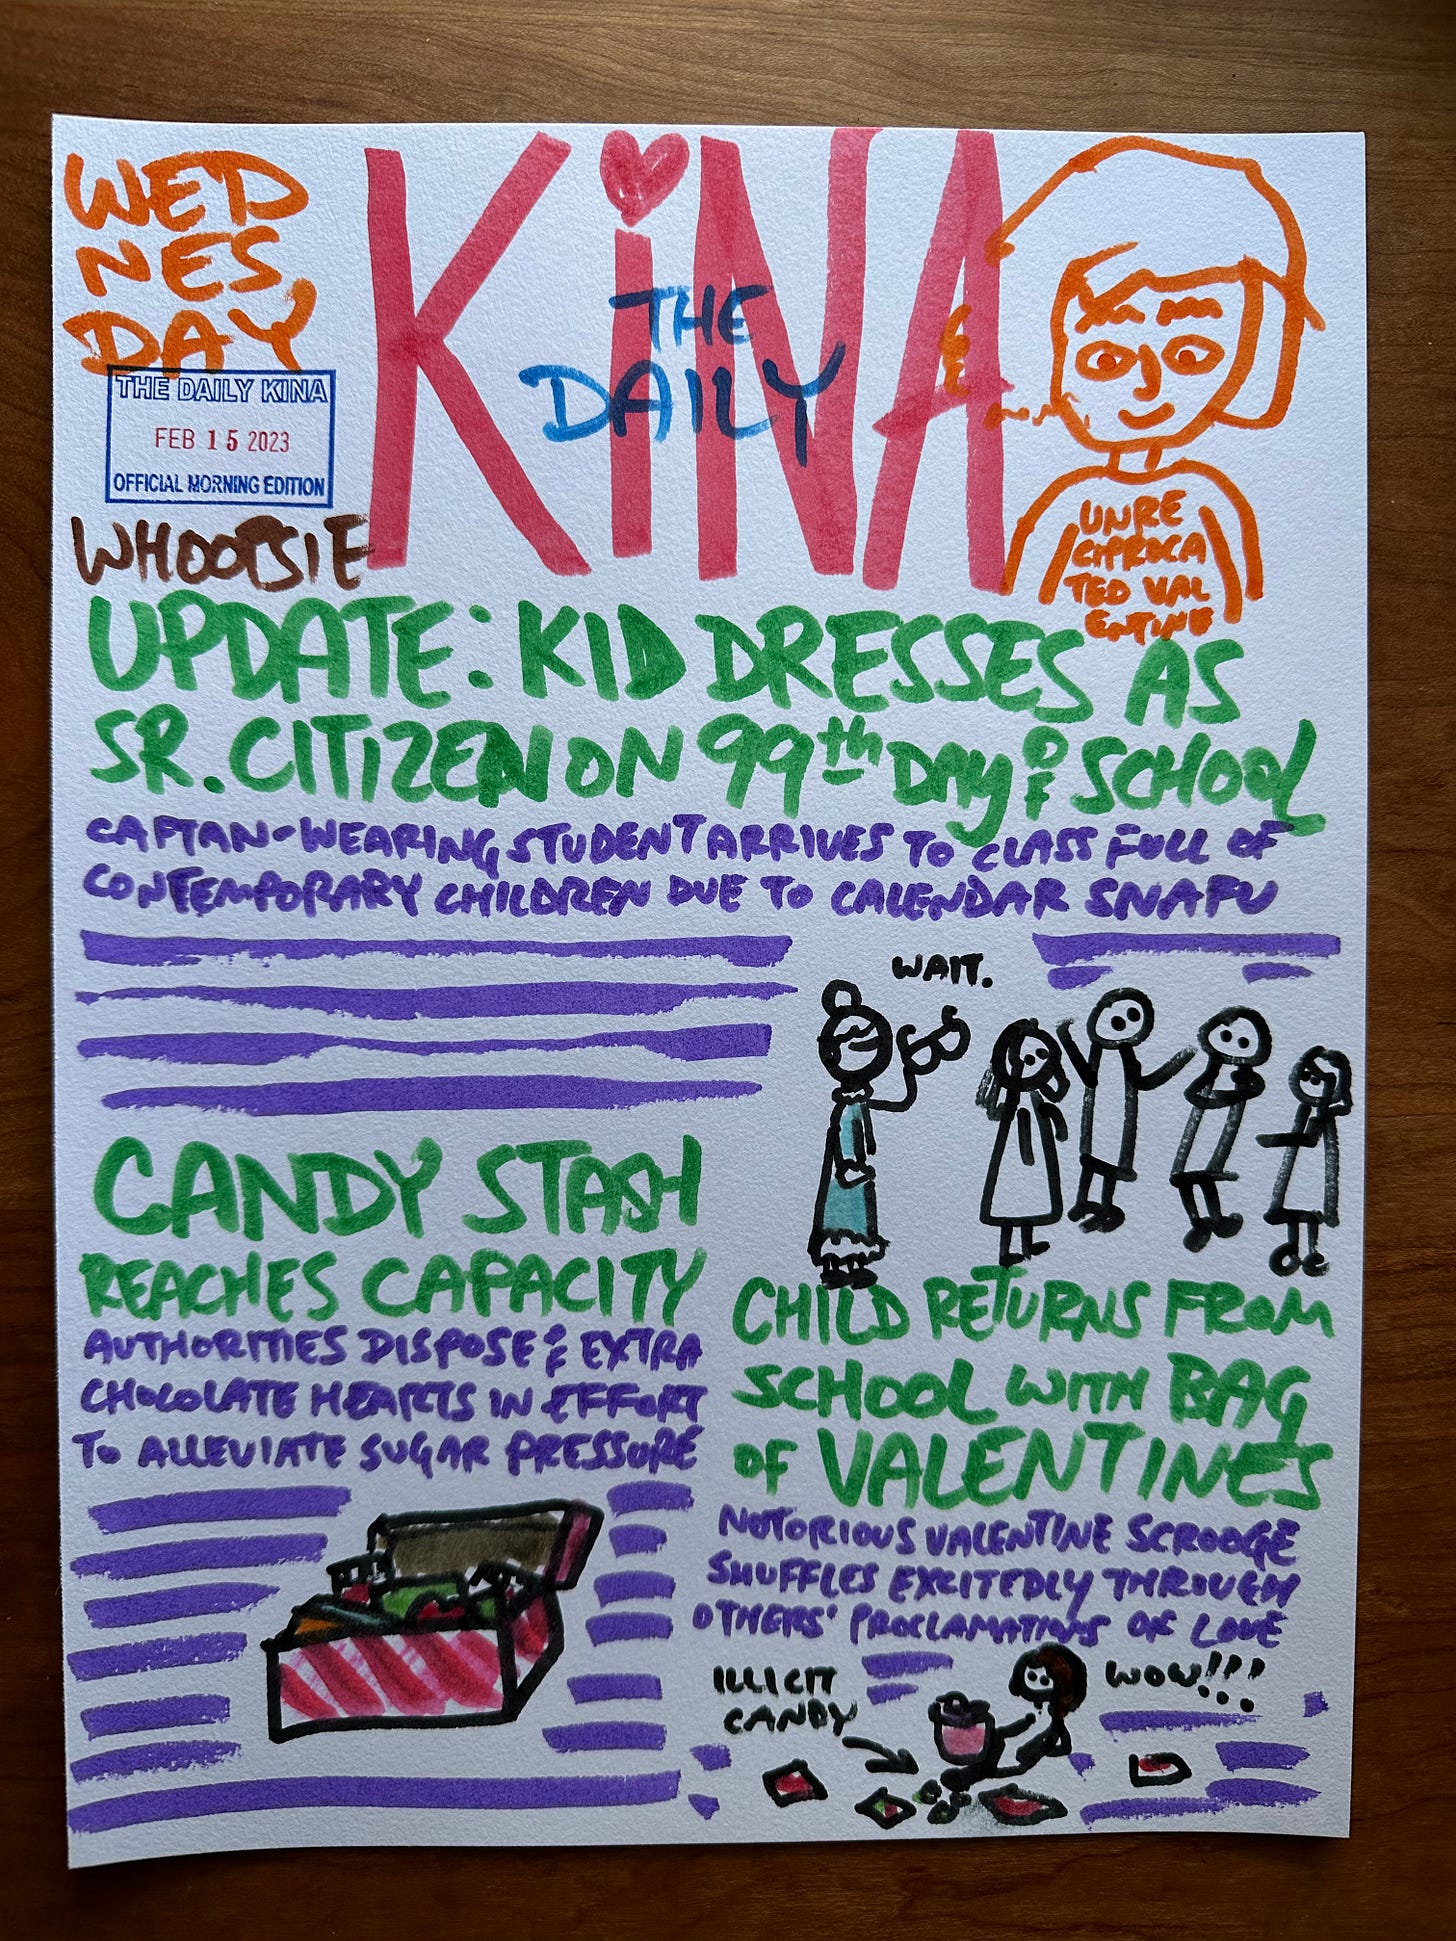 WED
NES
DAY
THE DAILY KINA
FEB 15 2023
OFFICIAL MORNING EDITION
WHOOPSIE
KiNA
THE
DAILY
UNRE
CIPROCA
TED VAL
ENTINE
UPDATE: KID DRESSES AS
SR. CITIZEN ON 99th DAY OF SCHOOL
CAFTAN-WEARING STUDENT ARRIVES TO CLASS FULL OF
CONTEMPORARY CHILDREN DUE TO CALENDAR SNAFU
WAIT.
CANDY STASH
REACHES CAPACITY
AUTHORITIES DISPOSE OF EXTRA
CHOCOLATE HEARTS IN EFFORT
TO ALLEVIATE SUGAR PRESSURE
CHILD RETURNS FROM
SCHOOL WITH BAG
OF VALENTINES
NOTORIOUS VALENTINE SCROOGE
SHUFFLES EXCITEDLY THROUGH
OTHERS' PROCLAMATIONS OF LOVE
ILLICIT
CANDY
WOW!!!